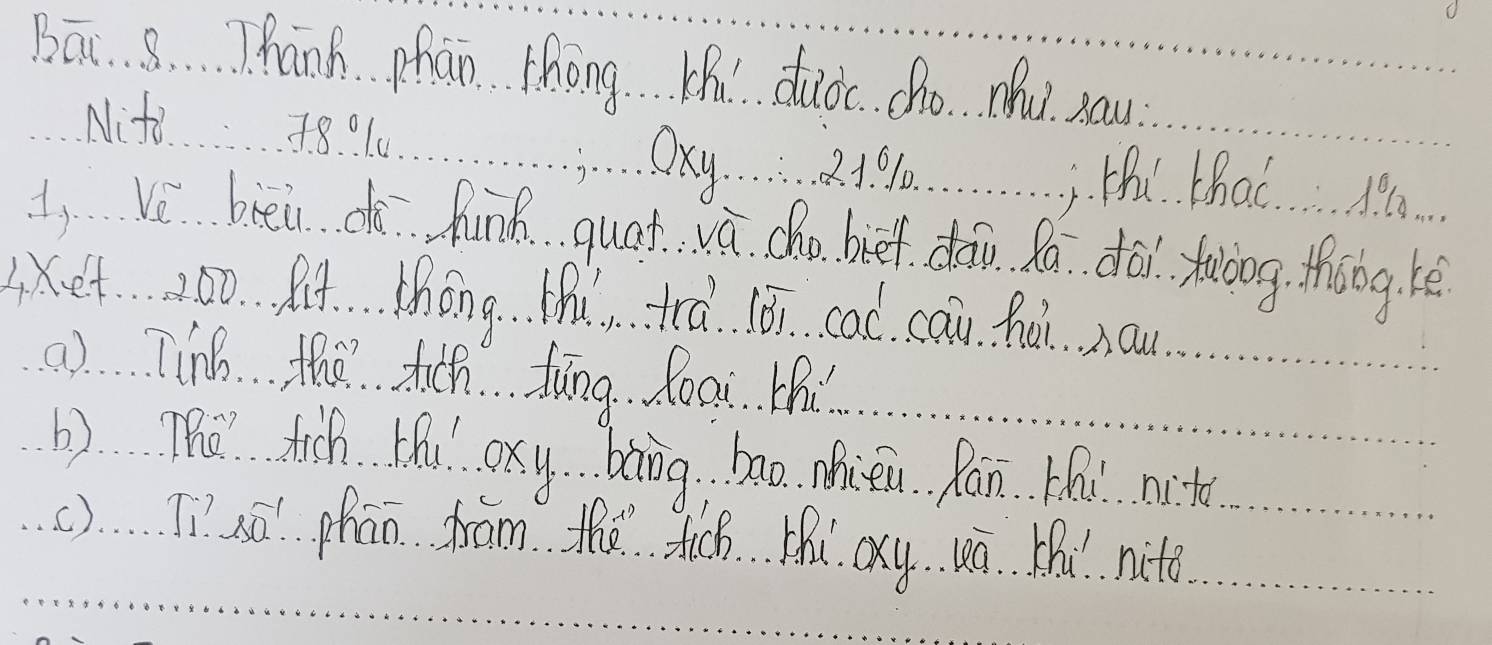 Bài 8 Thành phần không khí được cho như sau:
Nitơ : 78% ; Oxy : 21% ; khí khác : 1%
1, Vẽ biểu đồ hình quạt và cho biết đâu là đối tượng thống kê
4 Xét 200 lít không khí, trả lời các câu hỏi sau
a) Tính thể tích từng loại khí
b) Thể tích khí oxy bằng bao nhiêu lần khí nitơ
c) Tỉ số phần trăm thể tích khí oxy và khí nitơ